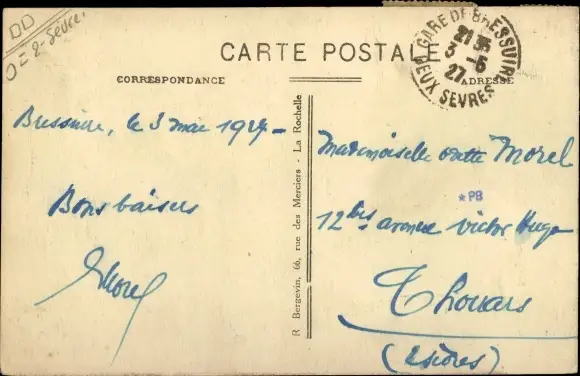 DD
D = 2-Sèvres
GARE DE BRESSUIRE
21 35
3 - 5
27
DEUX SEVRES
CARTE POSTALE
CORRESPONDANCE
ADRESSE
Bressuire, le 3 mai 1927 -
Bons baisers
Morel
R Bergevin, 66, rue des Merciers - La Rochelle
Mademoiselle Odette Morel
*PB
12 bis avenue Victor Hugo
Thouars
(2 Sèvres)